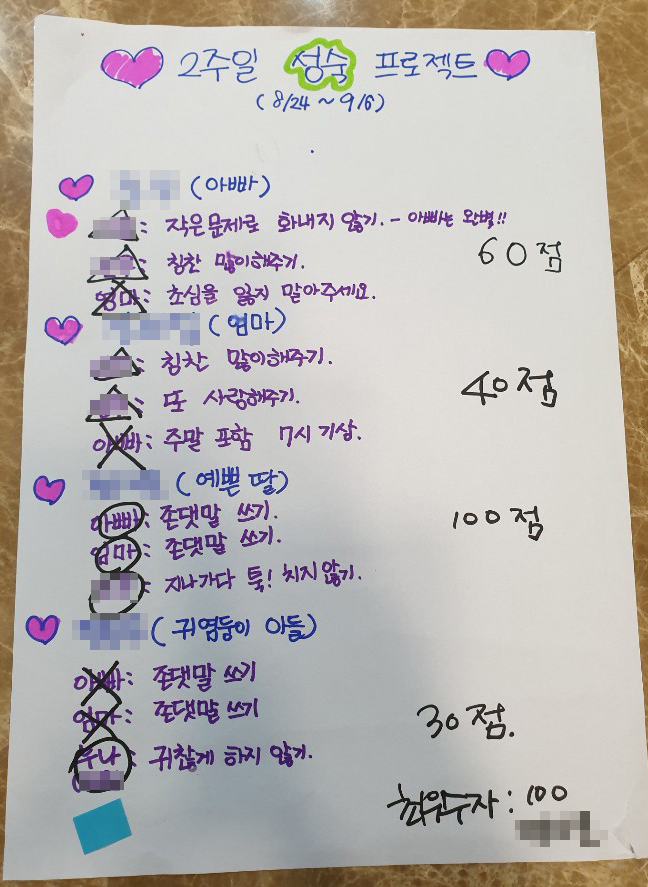 2주일 성숙 프로젝트
(8/24 ~ 9/6)
(아빠)
: 작은문제로 화내지 않기. - 아빠는 완벽!!
: 칭찬 많이해주기.
60점
엄마: 초심을 잃지 말아주세요.
(엄마)
: 칭찬 많이해주기.
: 또 사랑해주기.
40점
아빠: 주말 포함 7시 기상.
(예쁜 딸)
아빠: 존댓말 쓰기.
엄마: 존댓말 쓰기.
100점
: 지나가다 툭! 치지 않기.
(귀염둥이 아들)
아빠: 존댓말 쓰기
엄마: 존댓말 쓰기
30점.
누나: 귀찮게 하지 않기.
최우수자: 100